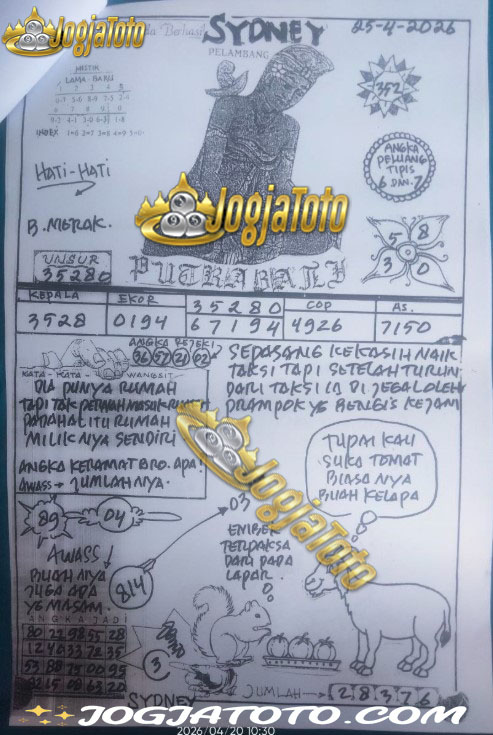 JogjaToto
SYDNEY
25-4-2026
PELAMBANG
MISTIK
LAMA BARU
352
INDEX
ANGKA
PELUANG
TIPIS
6 DAN 7
HATI-HATI
B. MERAK.
JogjaToto
5 8
3 0
UNSUR
35280
PUTRA BALI
KEPALA
EKOR
35280
COP
AS.
3528
0194
67194
4926
7150
ANGKA REJEKI
36 57 21 02
KATA-KATA WANGSIT
DIA PUNYA RUMAH
MILIKNYA SENDIRI
ANGKA KERAMAT BRO. APA?
AWASS → JUMLAHNYA.
SEPASANG KEKASIH NAIK
TAKSI TAPI SETELAH TURUN
DARI TAKSI IA DI JEGAL OLEH
PRAMPOK YG BENGIS KEJAM
TUPAI KALI
SUKA TOMAT
BIASA NYA
BUAH KELAPA
89
04
03
JogjaToto
EMBER
TERPAKSA
DARI PADA
LAPAR.
AWASS
BUAHNYA
JUGA ADA
YG MASAM.
814
ANGKA JADI
80 22 98 55 28
12 40 33 72 35
53 88 75 00 95
3
SYDNEY
JUMLAH → 2 8 3 7 6
JOGJATOTO.COM
2026/04/20 10:30